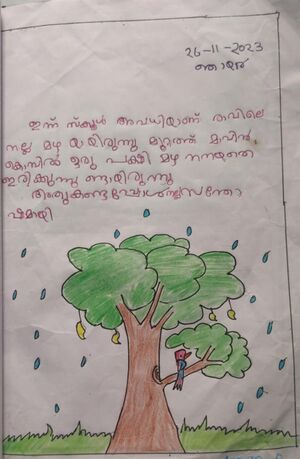 26-11-2023
ഞായർ
ഇന്ന് സ്കൂൾ അവധിയാണ് രാവിലെ
നല്ല മഴ യായിരുന്നു മുറ്റത്ത് മാവിൻ
കൊമ്പിൽ ഒരു പക്ഷി മഴ നനയാതെ
ഇരിക്കുന്നു ണ്ടായിരുന്നു
അതുകണ്ടപ്പോൾ നല്ല സന്തോ
ഷമായി